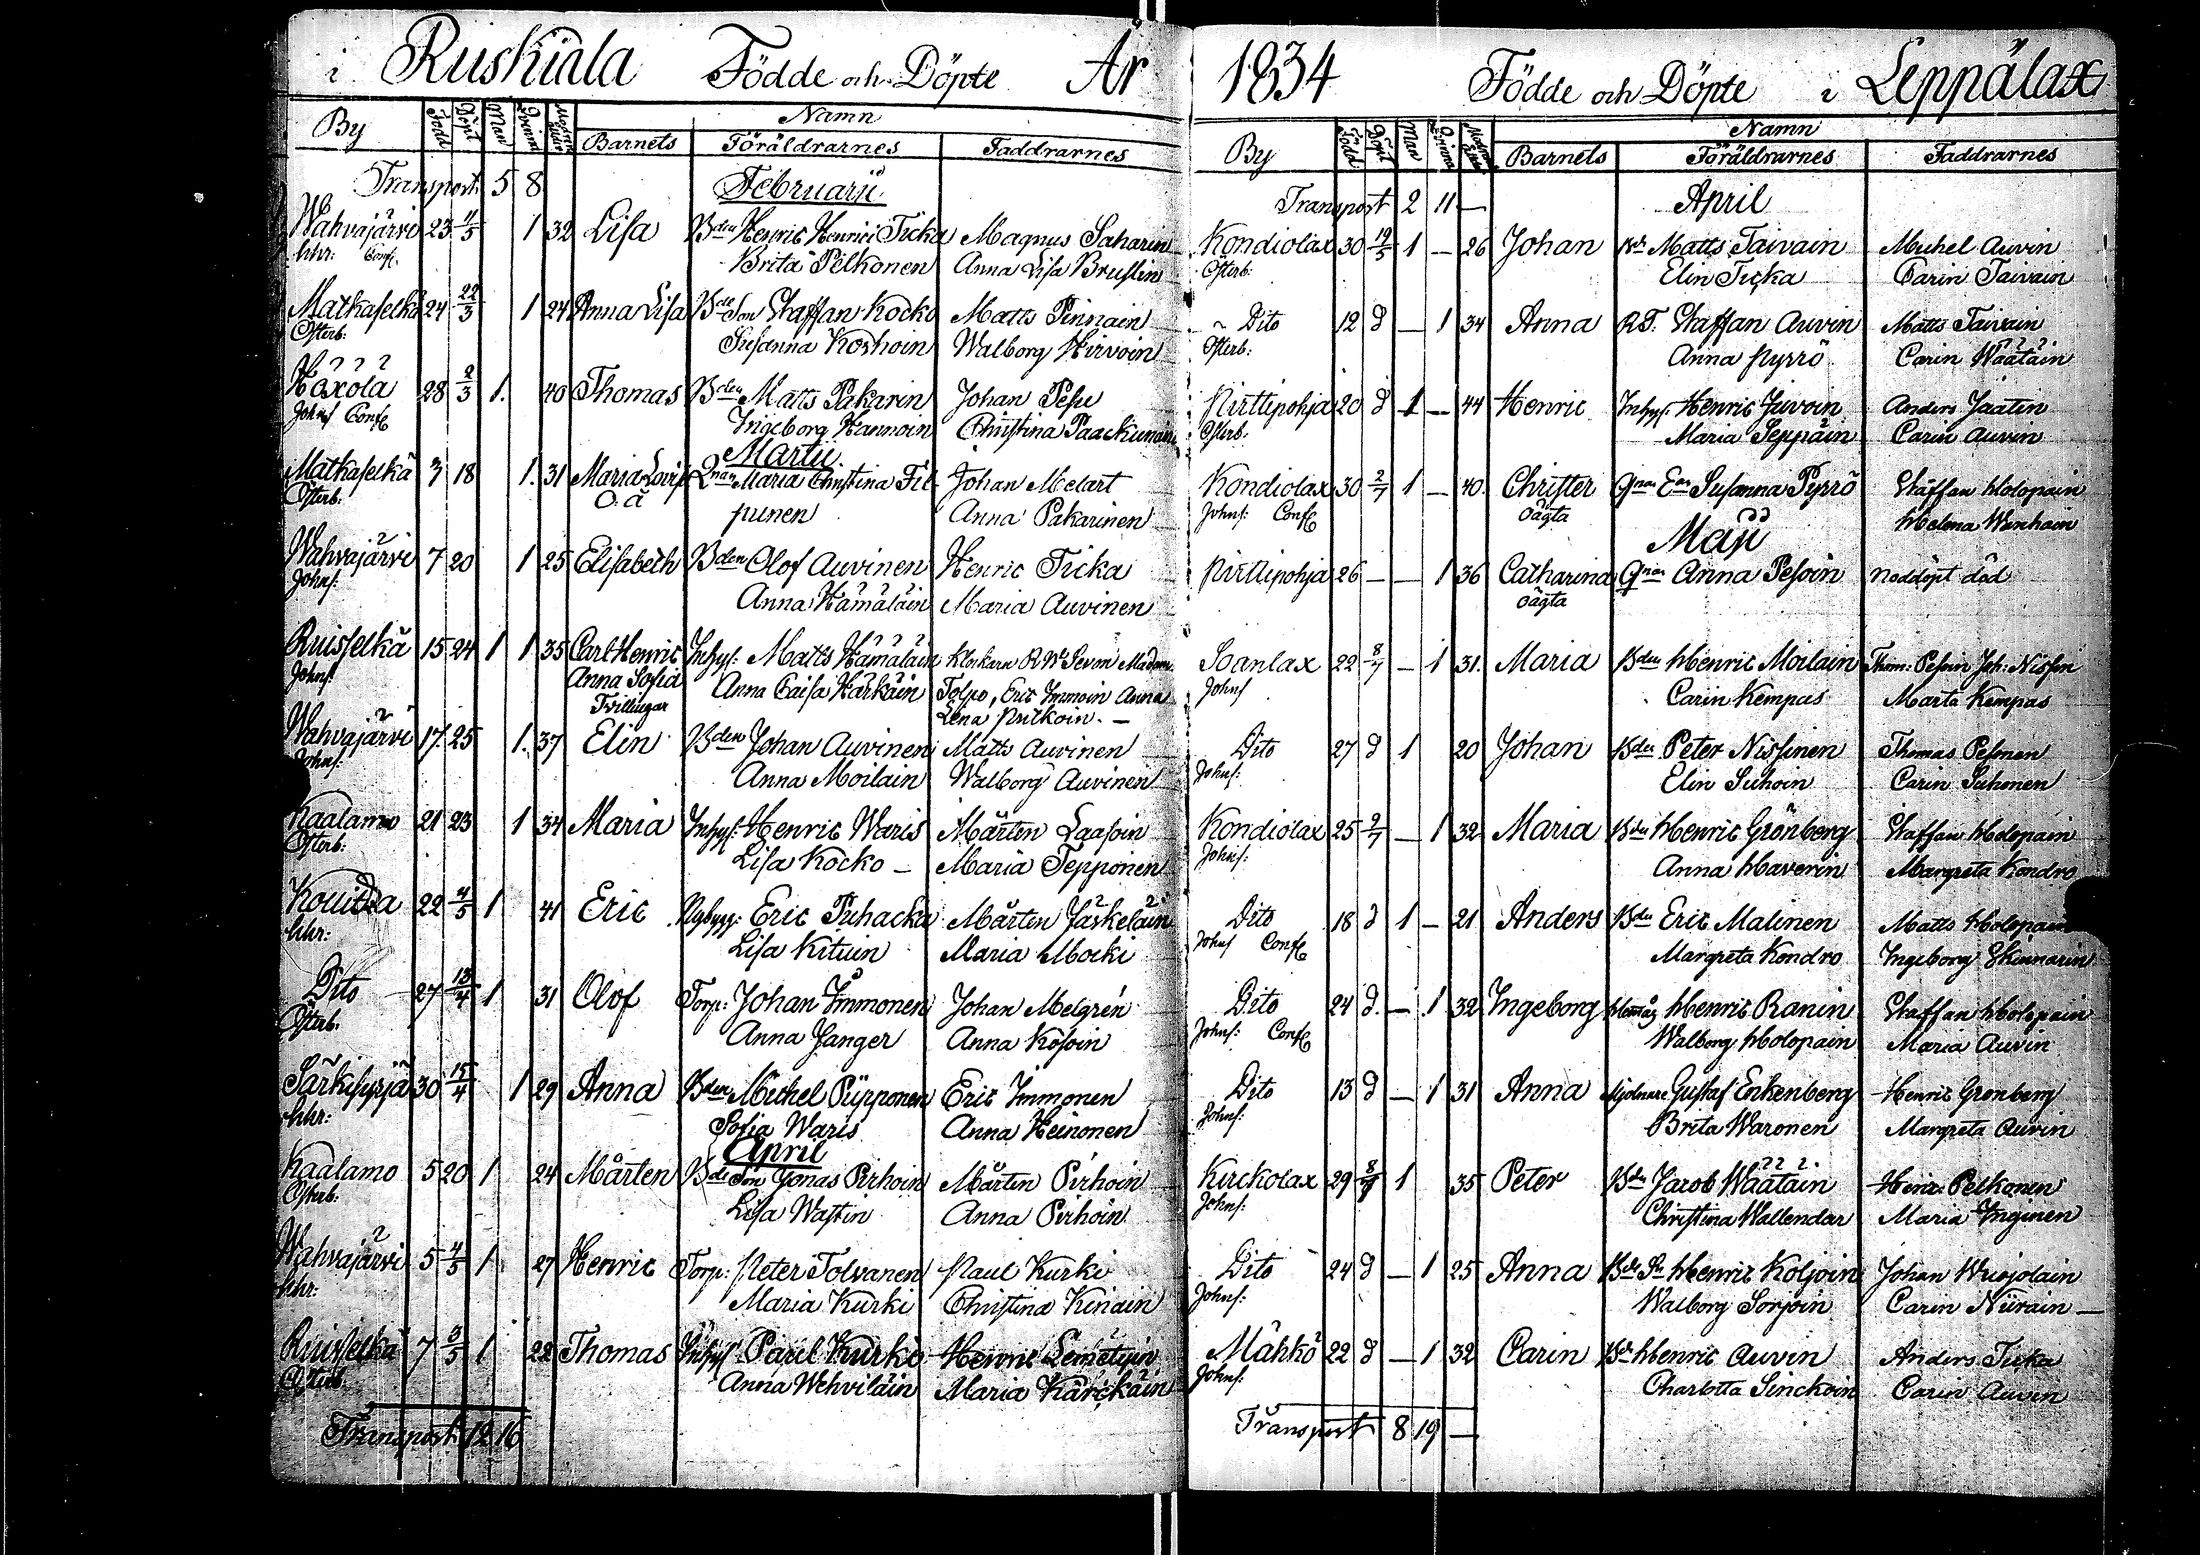 i Ruskiala Födde och Döpte År
By Född Döpt Man Qvinna Namn
Barnets Föräldrarnes Faddrarnes
Transport 5 8 Februarii
Wahvajärvi 23 4/5 1 32 Lisa Bden Henric Henrici Ticka Magnus Saharin
Brita Pelkonen Anna Lisa Bruslin
Matkaselkä 24 22/3 1 24 Anna Lisa Bde Son Staffan Kocko Matts Pinnain
Österb: Susanna Koshoin Walborg Hirvoin
Höxölä 28 2/3 1. 40 Thomas Bden Matts Pakarin Johan Pesu
Johns Conse Ingeborg Hannoin Christina Paackunain
Martii
Matkaselkä 3 18 1. 31 Maria Lovis Qnan Maria Christina Fil- Johan Melart
Österb: O.ä punen Anna Pakarinen
Wahvajärvi 7 20 1 25 Elisabeth Bden Olof Auvinen Henric Ticka
Johns: Anna Hämäläin Maria Auvinen
Ruisselkä 15 24 1 1 35 Carl Henric Inhys: Matts Hämäläin Klockern Sevon Madam
Johns: Anna Sofia Anna Caisa Härkäin Tolpo, Eric Immoin Anna
Tvillingar Lena Putkoin. —
Wahvajärvi 17 25 1. 37 Elin Bden Johan Auvinen Matts Auvinen
Johns: Anna Moilain Walborg Auvinen
Kaalamo 21 23 1 34 Maria Inhys: Henric Waris Mårten Laasoin
Österb: Lisa Kocko — Maria Tepponen
22 4/5 1 41 Eric Nybygg: Eric Puhacka Mårten Jäskeläin
Lisa Kituin Maria Mocki
Dito 27 13/4 1 31 Olof Torp: Johan Immonen Johan Melgrén
Österb. Anna Janger Anna Kosoin
Särkisyrjä 30 15/4 1 29 Anna Bden Michel Piipponen Eric Immonen
Sofia Waris Anna Heinonen
April
Kaalamo 5 20 1 24 Mårten Bde Son Jonas Pirhoin Mårten Pirhoin
Österb: Lisa Wastin Anna Pirhoin
Wahvajärvi 5 4/5 1 27 Henric Torp: Peter Tolvanen Paul Kurki
Maria Kurki Christina Kinain
Ruisselkä 7 3/5 1 22 Thomas Inhys Paul Kurki Henric Lemetyin
Österb: Anna Wehviläin Maria Kärckäin
Transport 12 16
1834 Födde och Döpte i Leppälax
By Född Döpt Man Qvinna Namn
Barnets Föräldrarnes Faddrarnes
Transport 2 11 — April
Kondiolax 30 19/5 1 — 26 Johan Bde Matts Taivain Michel Auvin
Österb: Elin Ticka Carin Taivain
Dito 12 d — 1 34 Anna R.T. Staffan Auvin Matts Taivain
Österb: Anna Pyrrö Carin Wäätäin
Pirttipohja 20 d 1 — 44 Henric Inhys: Henric Juvoin Anders Jaatin
Österb: Maria Seppäin Carin Auvin
Kondiolax 30 2/7 1 — 40 Christer Qnan Susanna Pyrrö Staffan Holopain
Johns: Conse oägta Helena Wenhain
Maji
Pirttipohja 26 — — 1 36 Catharina Qnan Anna Pesoin nöddöpt död
oägta
Soanlax 22 8/7 — 1 31. Maria Bden Henric Moilain Thom: Pesoin Joh: Nissin
Johns Carin Kempas Marta Kempas
Dito 27 d 1 20 Johan Bden Peter Nissinen Thomas Pesonen
Johns: Elin Suhoin Carin Suhonen
Kondiolax 25 2/7 — 1 32 Maria Bde Henric Grönberg Staffan Holopain
Johns: Anna Haverin Margreta Kondro
Dito 18 d 1 — 21 Anders Bde Eric Malinen Matts Holopain
Johns Conse Margreta Kondro Ingeborg Skinnarin
Dito 24 d. — 1 32 Ingeborg Henric Ranin Staffan Holopain
Johns: Conse Walborg Holopain Maria Auvin
Dito 13 d — 1 31 Anna Mjölnare Gustaf Enkenberg Henric Grönberg
Johns: Brita Waronen Margreta Auvin
Kirckolax 29 1 35 Peter Bde Jacob Wäätäin Henr: Pelkonen
Johns: Christina Wallendar Maria Inginen
Dito 24 d — 1 25 Anna Bde Sn Henric Koljoin Johan
Johns: Walborg Sorjoin Carin Niirain —
Mähkö 22 d — 1 32 Carin Bde Henric Auvin Anders Ticka
Johns: Charlotta Sinckoin Carin Auvin
Transport 8 19 —